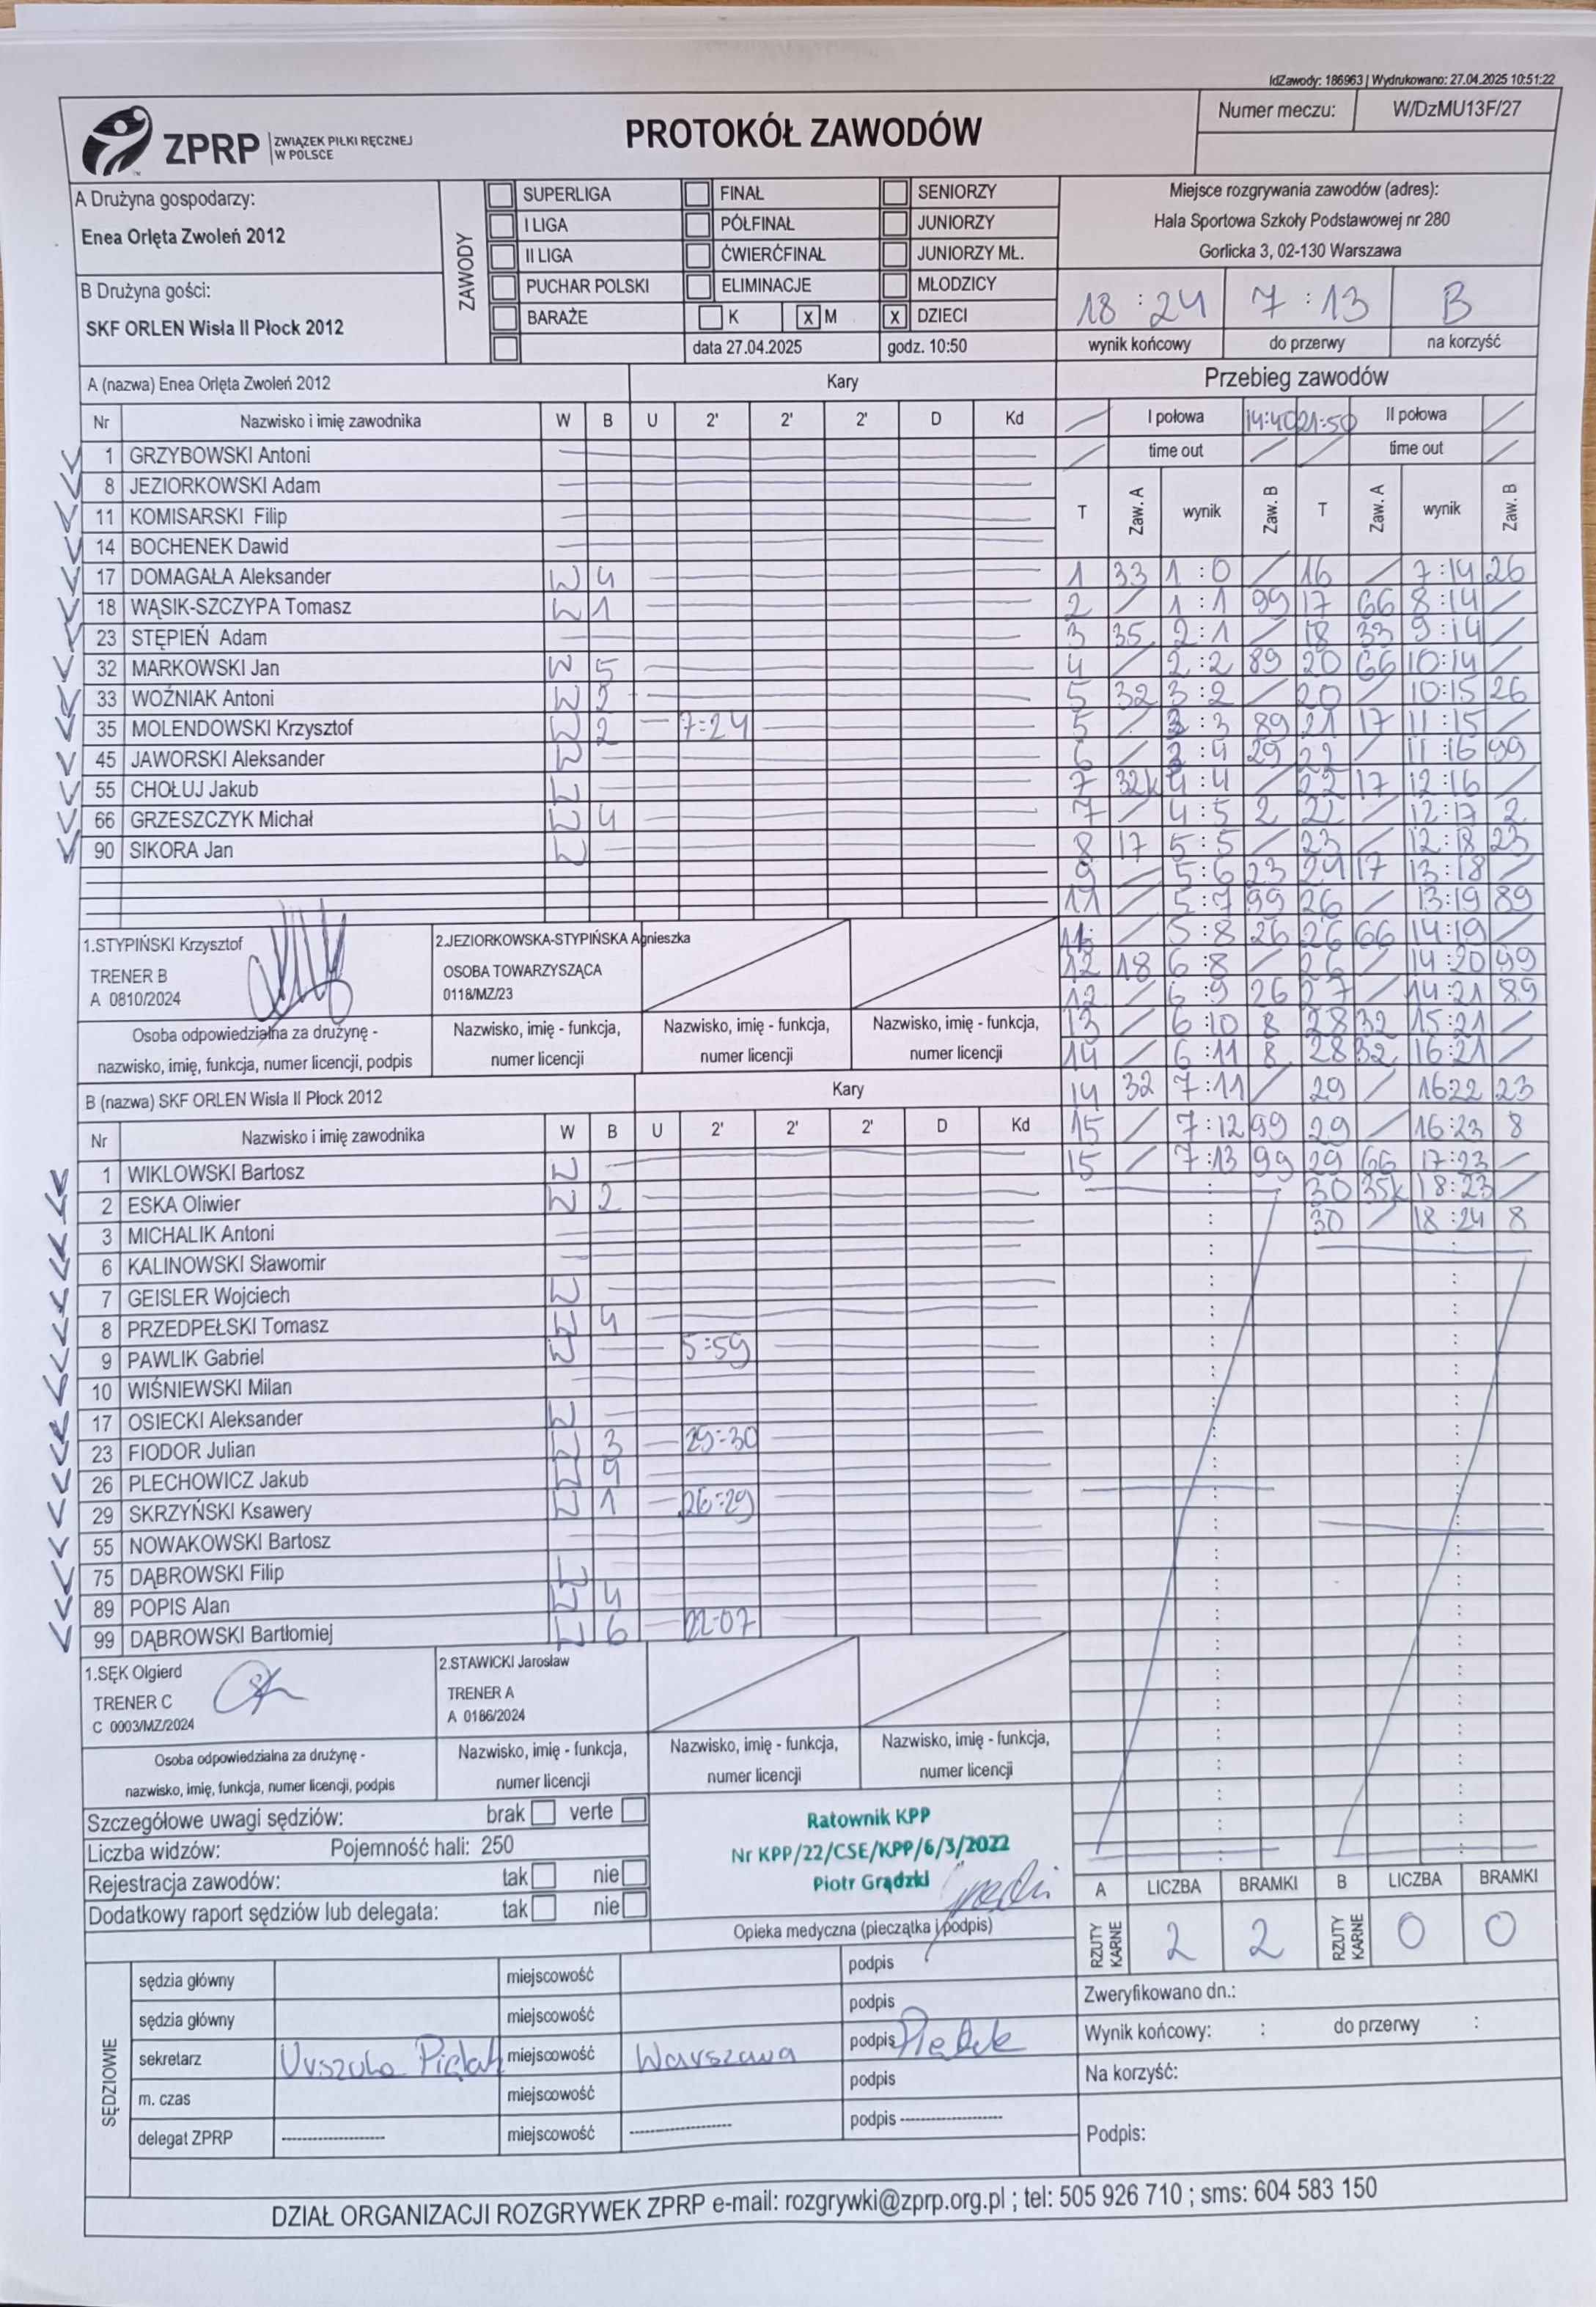 IdZawody: 186963 | Wydrukowano: 27.04.2025 10:51:22
ZPRP ZWIĄZEK PIŁKI RĘCZNEJ W POLSCE
PROTOKÓŁ ZAWODÓW
Numer meczu: W/DzMU13F/27
A Drużyna gospodarzy:
Enea Orlęta Zwoleń 2012
B Drużyna gości:
SKF ORLEN Wisła II Płock 2012
ZAWODY
SUPERLIGA FINAŁ SENIORZY
I LIGA PÓŁFINAŁ JUNIORZY
II LIGA ĆWIERĆFINAŁ JUNIORZY MŁ.
PUCHAR POLSKI ELIMINACJE MŁODZICY
BARAŻE K X M X DZIECI
data 27.04.2025 godz. 10:50
Miejsce rozgrywania zawodów (adres):
Hala Sportowa Szkoły Podstawowej nr 280
Gorlicka 3, 02-130 Warszawa
18 : 24 7 : 13 B
wynik końcowy do przerwy na korzyść
A (nazwa) Enea Orlęta Zwoleń 2012 Kary
Nr Nazwisko i imię zawodnika W B U 2' 2' 2' D Kd
1 GRZYBOWSKI Antoni
8 JEZIORKOWSKI Adam
11 KOMISARSKI Filip
14 BOCHENEK Dawid
17 DOMAGAŁA Aleksander W 4
18 WĄSIK-SZCZYPA Tomasz W 1
23 STĘPIEŃ Adam
32 MARKOWSKI Jan W 5
33 WOŹNIAK Antoni W 2
35 MOLENDOWSKI Krzysztof W 2 7:24
45 JAWORSKI Aleksander W
55 CHOŁUJ Jakub W
66 GRZESZCZYK Michał W 4
90 SIKORA Jan W
1.STYPIŃSKI Krzysztof
TRENER B
A 0810/2024
2.JEZIORKOWSKA-STYPIŃSKA Agnieszka
OSOBA TOWARZYSZĄCA
0118/MZ/23
Osoba odpowiedzialna za drużynę -
nazwisko, imię, funkcja, numer licencji, podpis
Nazwisko, imię - funkcja,
numer licencji
Nazwisko, imię - funkcja,
numer licencji
Nazwisko, imię - funkcja,
numer licencji
B (nazwa) SKF ORLEN Wisła II Płock 2012 Kary
Nr Nazwisko i imię zawodnika W B U 2' 2' 2' D Kd
1 WIKLOWSKI Bartosz W
2 ESKA Oliwier W 2
3 MICHALIK Antoni
6 KALINOWSKI Sławomir
7 GEISLER Wojciech W
8 PRZEDPEŁSKI Tomasz W 4
9 PAWLIK Gabriel W 5:59
10 WIŚNIEWSKI Milan
17 OSIECKI Aleksander W
23 FIODOR Julian W 3 29:30
26 PLECHOWICZ Jakub W
29 SKRZYŃSKI Ksawery W 1 26:29
55 NOWAKOWSKI Bartosz
75 DĄBROWSKI Filip W
89 POPIS Alan W 4
99 DĄBROWSKI Bartłomiej W 6 22:07
1.SĘK Olgierd
TRENER C
C 0003/MZ/2024
2.STAWICKI Jarosław
TRENER A
A 0186/2024
Osoba odpowiedzialna za drużynę -
nazwisko, imię, funkcja, numer licencji, podpis
Nazwisko, imię - funkcja,
numer licencji
Nazwisko, imię - funkcja,
numer licencji
Nazwisko, imię - funkcja,
numer licencji
Przebieg zawodów
I połowa 14:40 21:50 II połowa
time out time out
T Zaw. A wynik Zaw. B T Zaw. A wynik Zaw. B
1 33 1:0 / 16 / 7:14 26
2 / 1:1 99 17 66 8:14 /
3 35 2:1 / 18 33 9:14 /
4 / 2:2 89 20 66 10:14 /
5 32 3:2 / 20 / 10:15 26
5 / 3:3 89 21 17 11:15 /
6 / 3:4 29 22 / 11:16 99
7 32k 4:4 / 22 17 12:16 /
7 / 4:5 2 22 / 12:17 2
8 17 5:5 / 23 / 12:18 23
9 / 5:6 23 24 17 13:18 /
11 / 5:7 99 26 / 13:19 89
/ 5:8 26 26 66 14:19 /
12 18 6:8 / 26 / 14:20 99
12 / 6:9 26 27 / 14:21 89
13 / 6:10 8 28 32 15:21 /
14 / 6:11 8 28 32 16:21 /
14 32 7:11 / 29 / 16 22 23
15 / 7:12 99 29 / 16:23 8
15 / 7:13 99 29 66 17:23 /
30 35k 18:23 /
30 / 18:24 8
Szczegółowe uwagi sędziów: brak verte
Liczba widzów: Pojemność hali: 250
Rejestracja zawodów: tak nie
Dodatkowy raport sędziów lub delegata: tak nie
Ratownik KPP
Nr KPP/22/CSE/KPP/6/3/2022
Piotr Grądzki
Opieka medyczna (pieczątka i podpis)
A LICZBA BRAMKI B LICZBA BRAMKI
RZUTY KARNE 2 2 RZUTY KARNE 0 0
SĘDZIOWIE
sędzia główny miejscowość podpis
sędzia główny miejscowość podpis
sekretarz Urszula Piątek miejscowość Warszawa podpis Piątek
m. czas miejscowość podpis
delegat ZPRP ---------- miejscowość ---------- podpis ----------
Zweryfikowano dn.:
Wynik końcowy: : do przerwy :
Na korzyść:
Podpis:
DZIAŁ ORGANIZACJI ROZGRYWEK ZPRP e-mail: rozgrywki@zprp.org.pl ; tel: 505 926 710 ; sms: 604 583 150